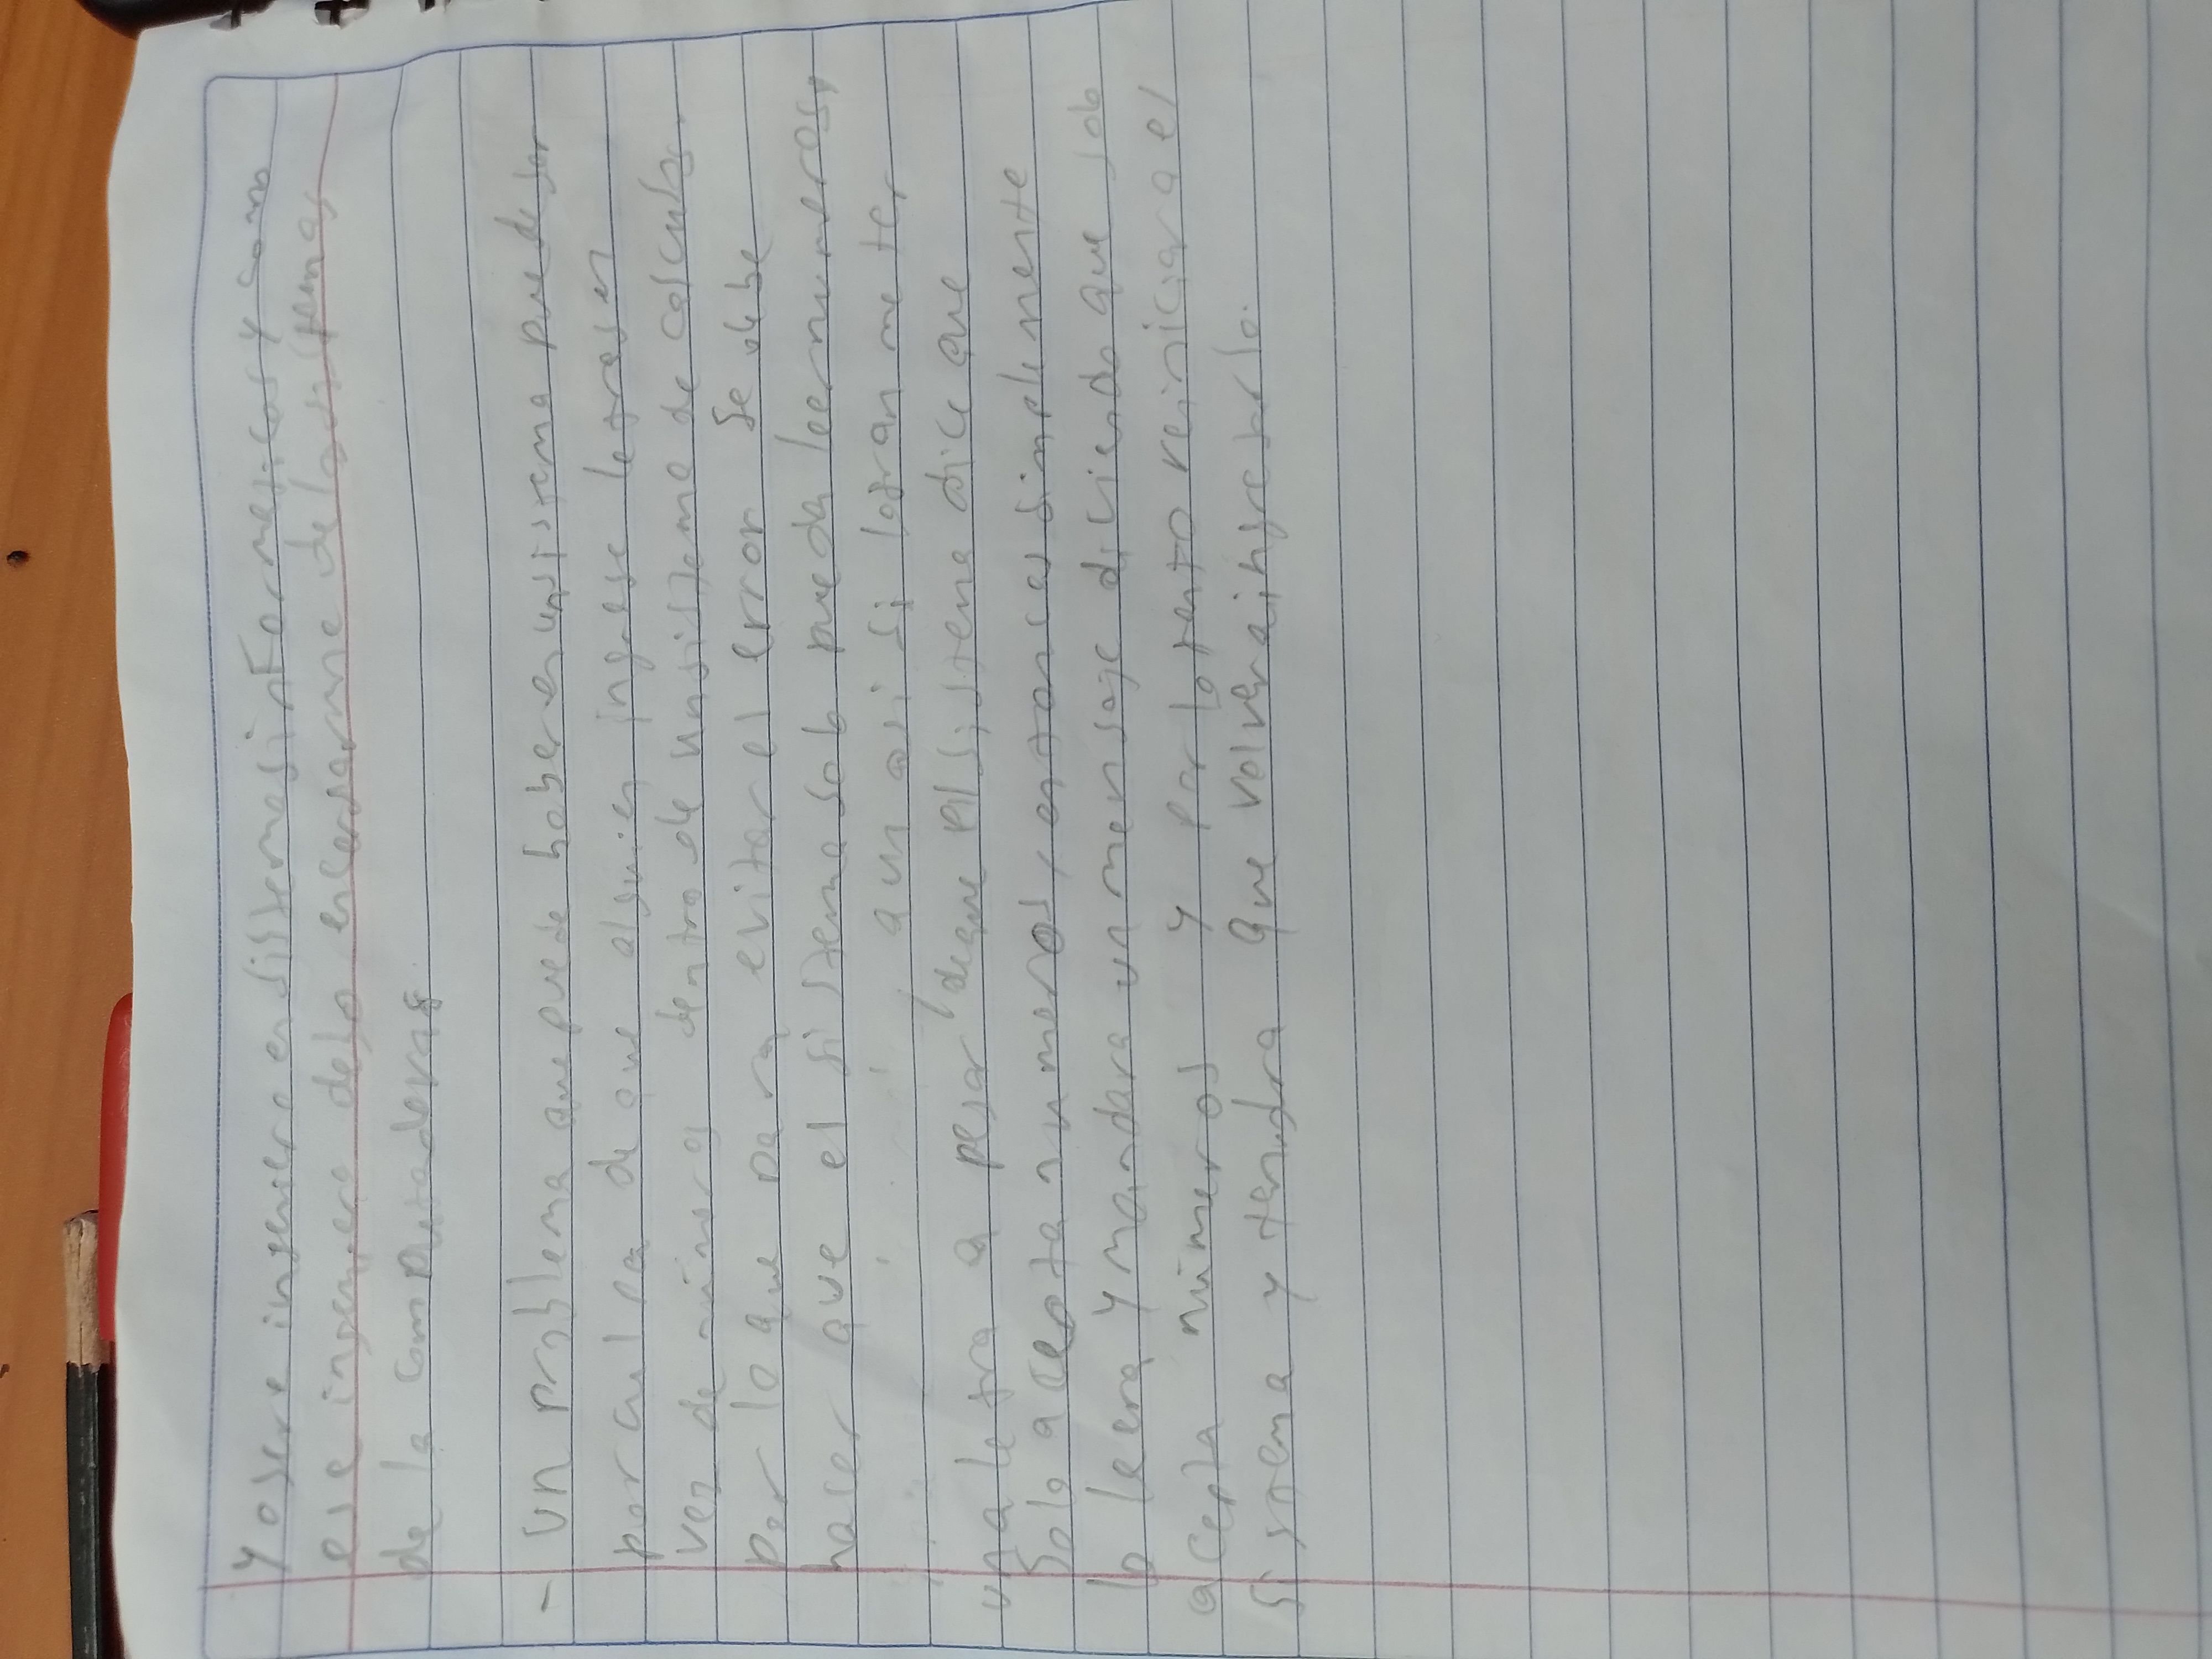 Yo sere ingeniero en sistemas informaticos y como
ese ingeniero debo encargarme de los sistemas
de la computadoras
- Un problema que puede haber en un sistema puede ser
por culpa de que alguien ingrese letras en
vez de números dentro de un sistema de calculo
por lo que para evitar el error se debe
hacer que el sistema solo pueda leer numeros,
, aun asi si logran meter
una letra a pesar de que el sistema dice que
Solo acepta numeros, entonces simplemente
lo leera y mandara un mensaje diciendo que solo
acepta números y por lo tanto reiniciara el
Sistema y tendra que volver a ingresarlo.